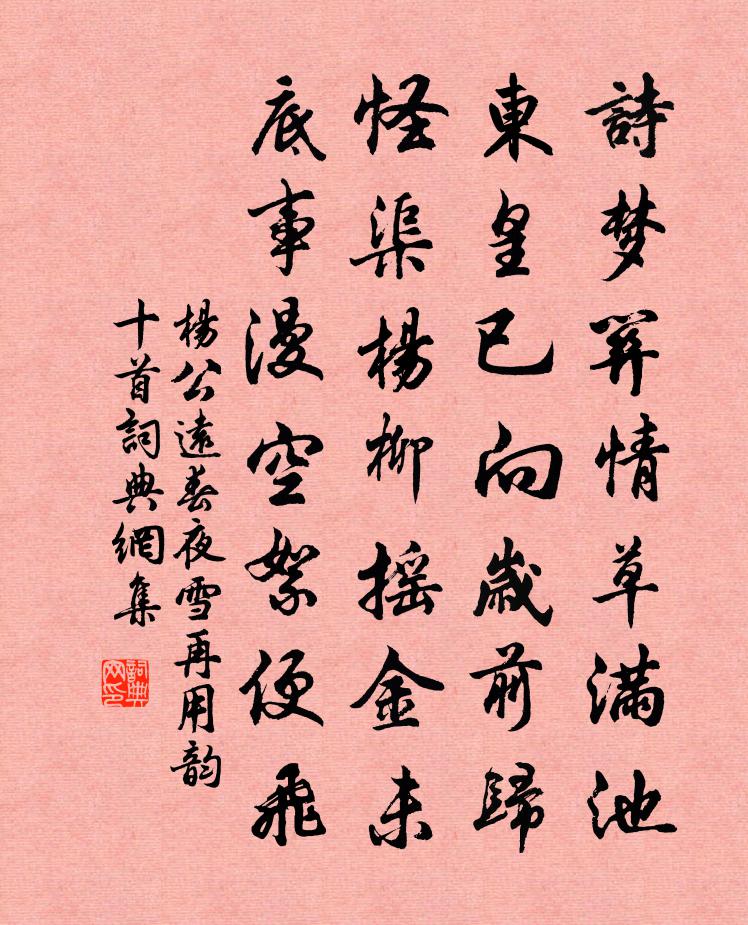 詩梦關情草滿池
東皇已向歲前歸
怪渠楊柳摇金未
底事漫空絮便飛
楊公遠春夜雪再用韵
十首詞典網集
詞典网印